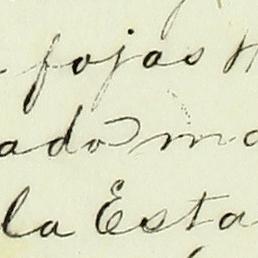 fojas
ado
la Esta